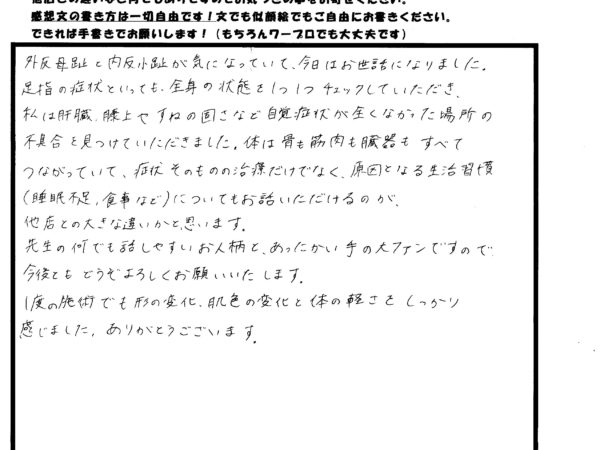 感想文の書き方は一切自由です！文でも似顔絵でもご自由にお書きください。
できれば手書きでお願いします！（もちろんワープロでも大丈夫です）
外反母趾と内反小趾が気になっていて、今日はお世話になりました。
足指の症状といっても、全身の状態を1つ1つチェックしていただき、
私は肝臓、膝上やすねの固さなど自覚症状が全くなかった場所の
不具合を見つけていただきました。体は骨も筋肉も臓器もすべて
つながっていて、症状そのものの治療だけでなく、原因となる生活習慣
(睡眠不足、食事など)についてもお話いただけるのが、
他店との大きな違いかと思います。
先生の何でも話しやすいお人柄と、あったかい手の大ファンですので
今後ともどうぞよろしくお願いいたします。
1度の施術でも形の変化、肌色の変化と体の軽さをしっかり
感じました。ありがとうございます。